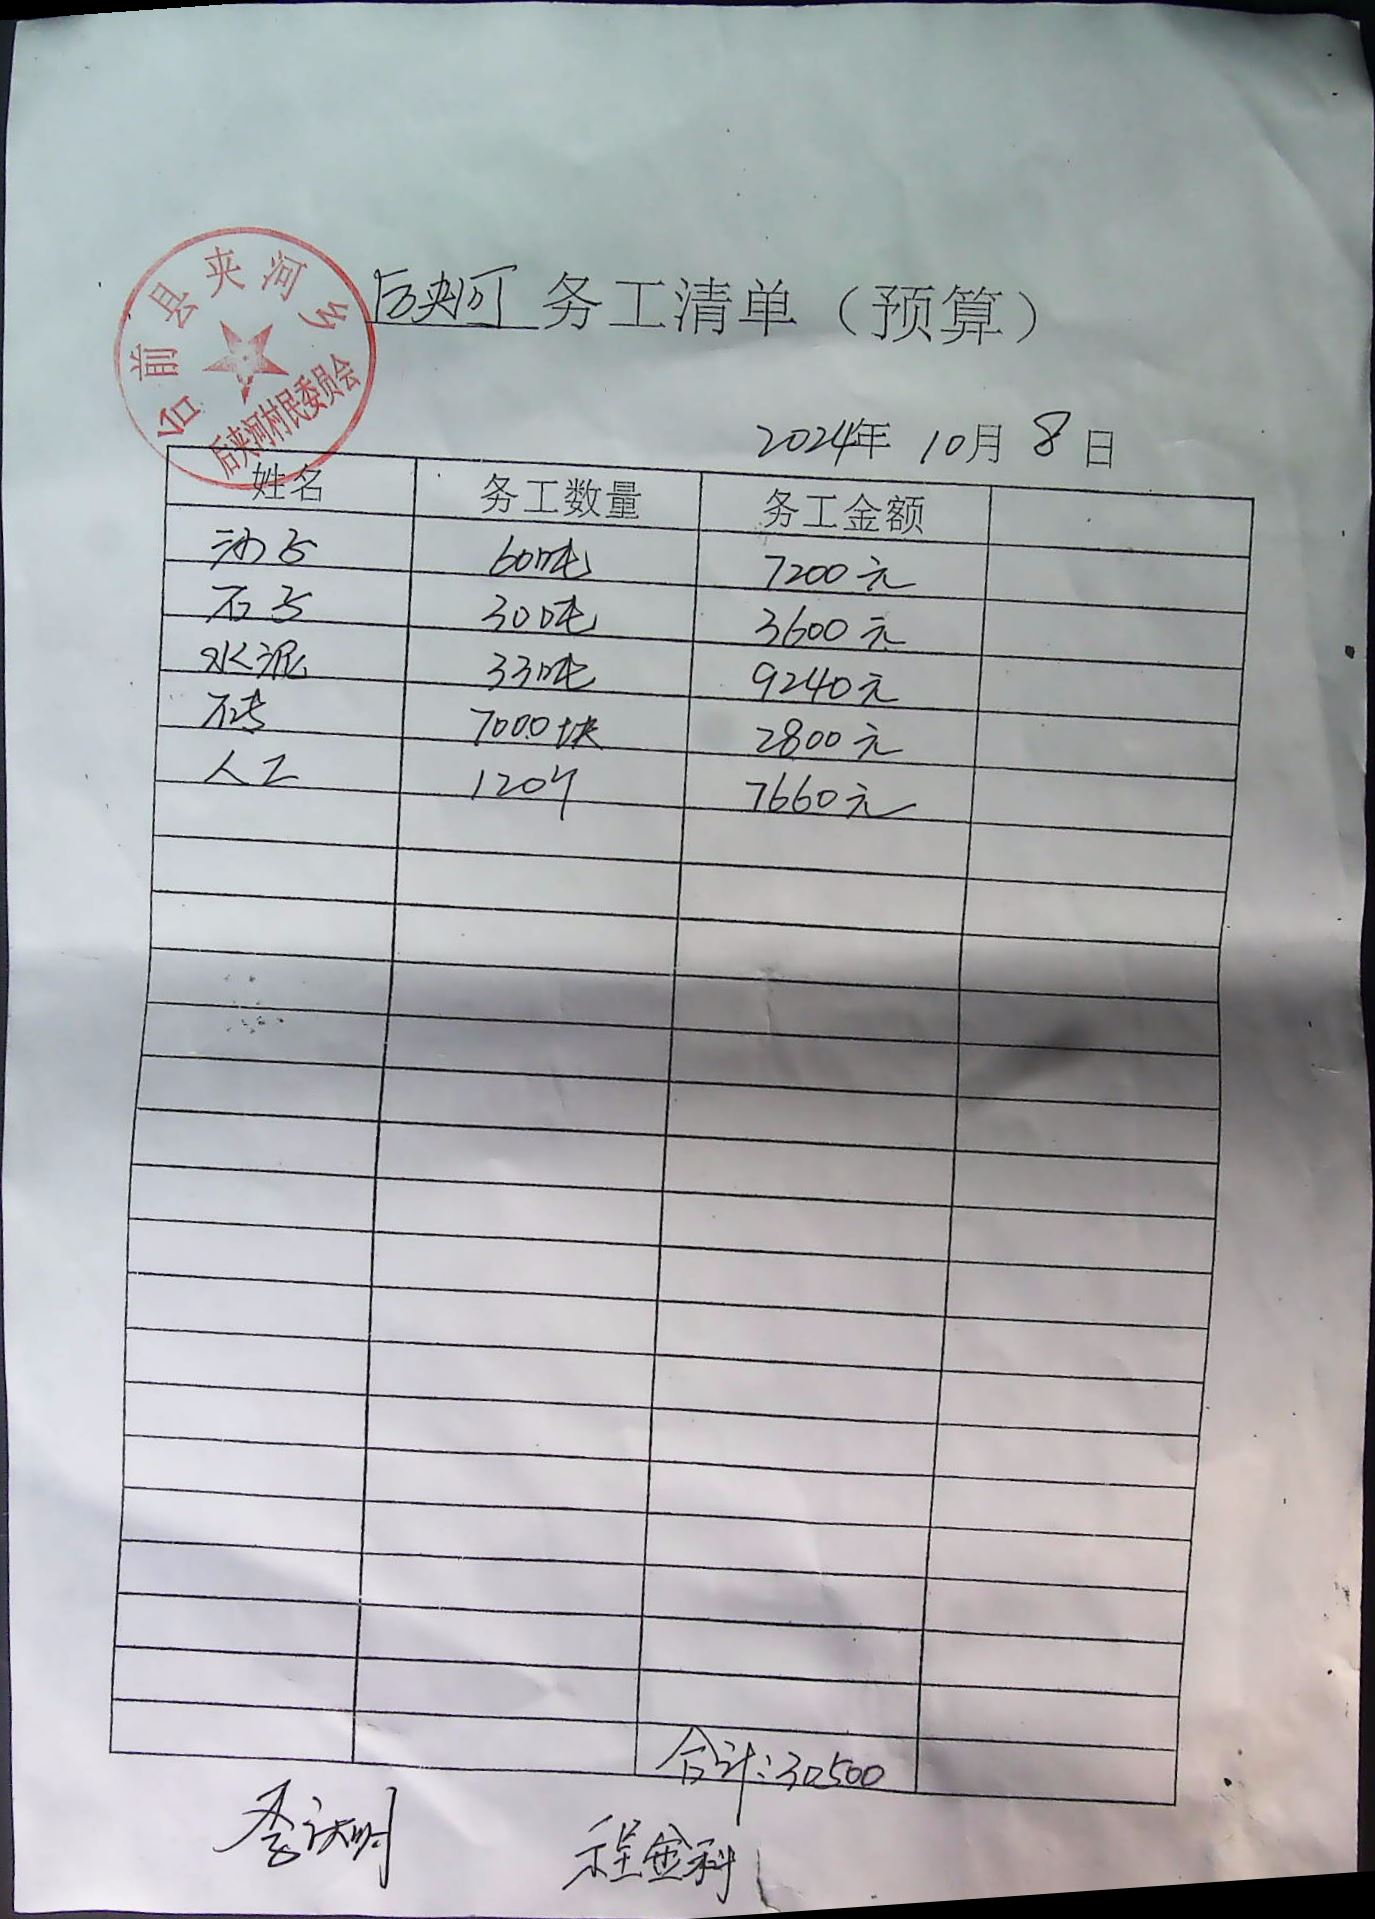 台前县夹河乡
后夹河村民委员会
后夹河务工清单（预算）
2024年 10月 8日
姓名 务工数量 务工金额
沙子 60吨 7200元
石子 30吨 3600元
水泥 33吨 9240元
石砖 7000块 2800元
人工 120个 7660元
合计：30500
程金科